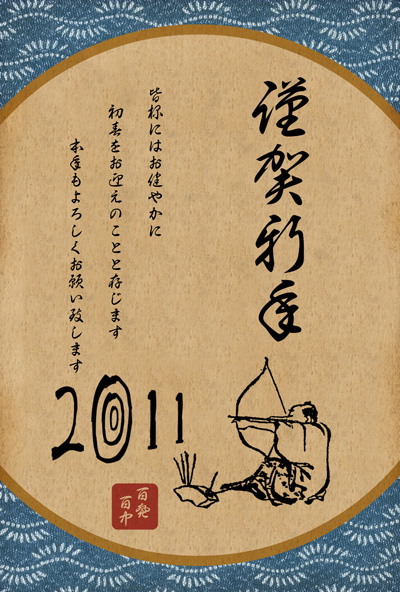 謹賀新年
皆様にはお健やかに
初春をお迎えのことと存じます
本年もよろしくお願い致します
2011
百発
百中